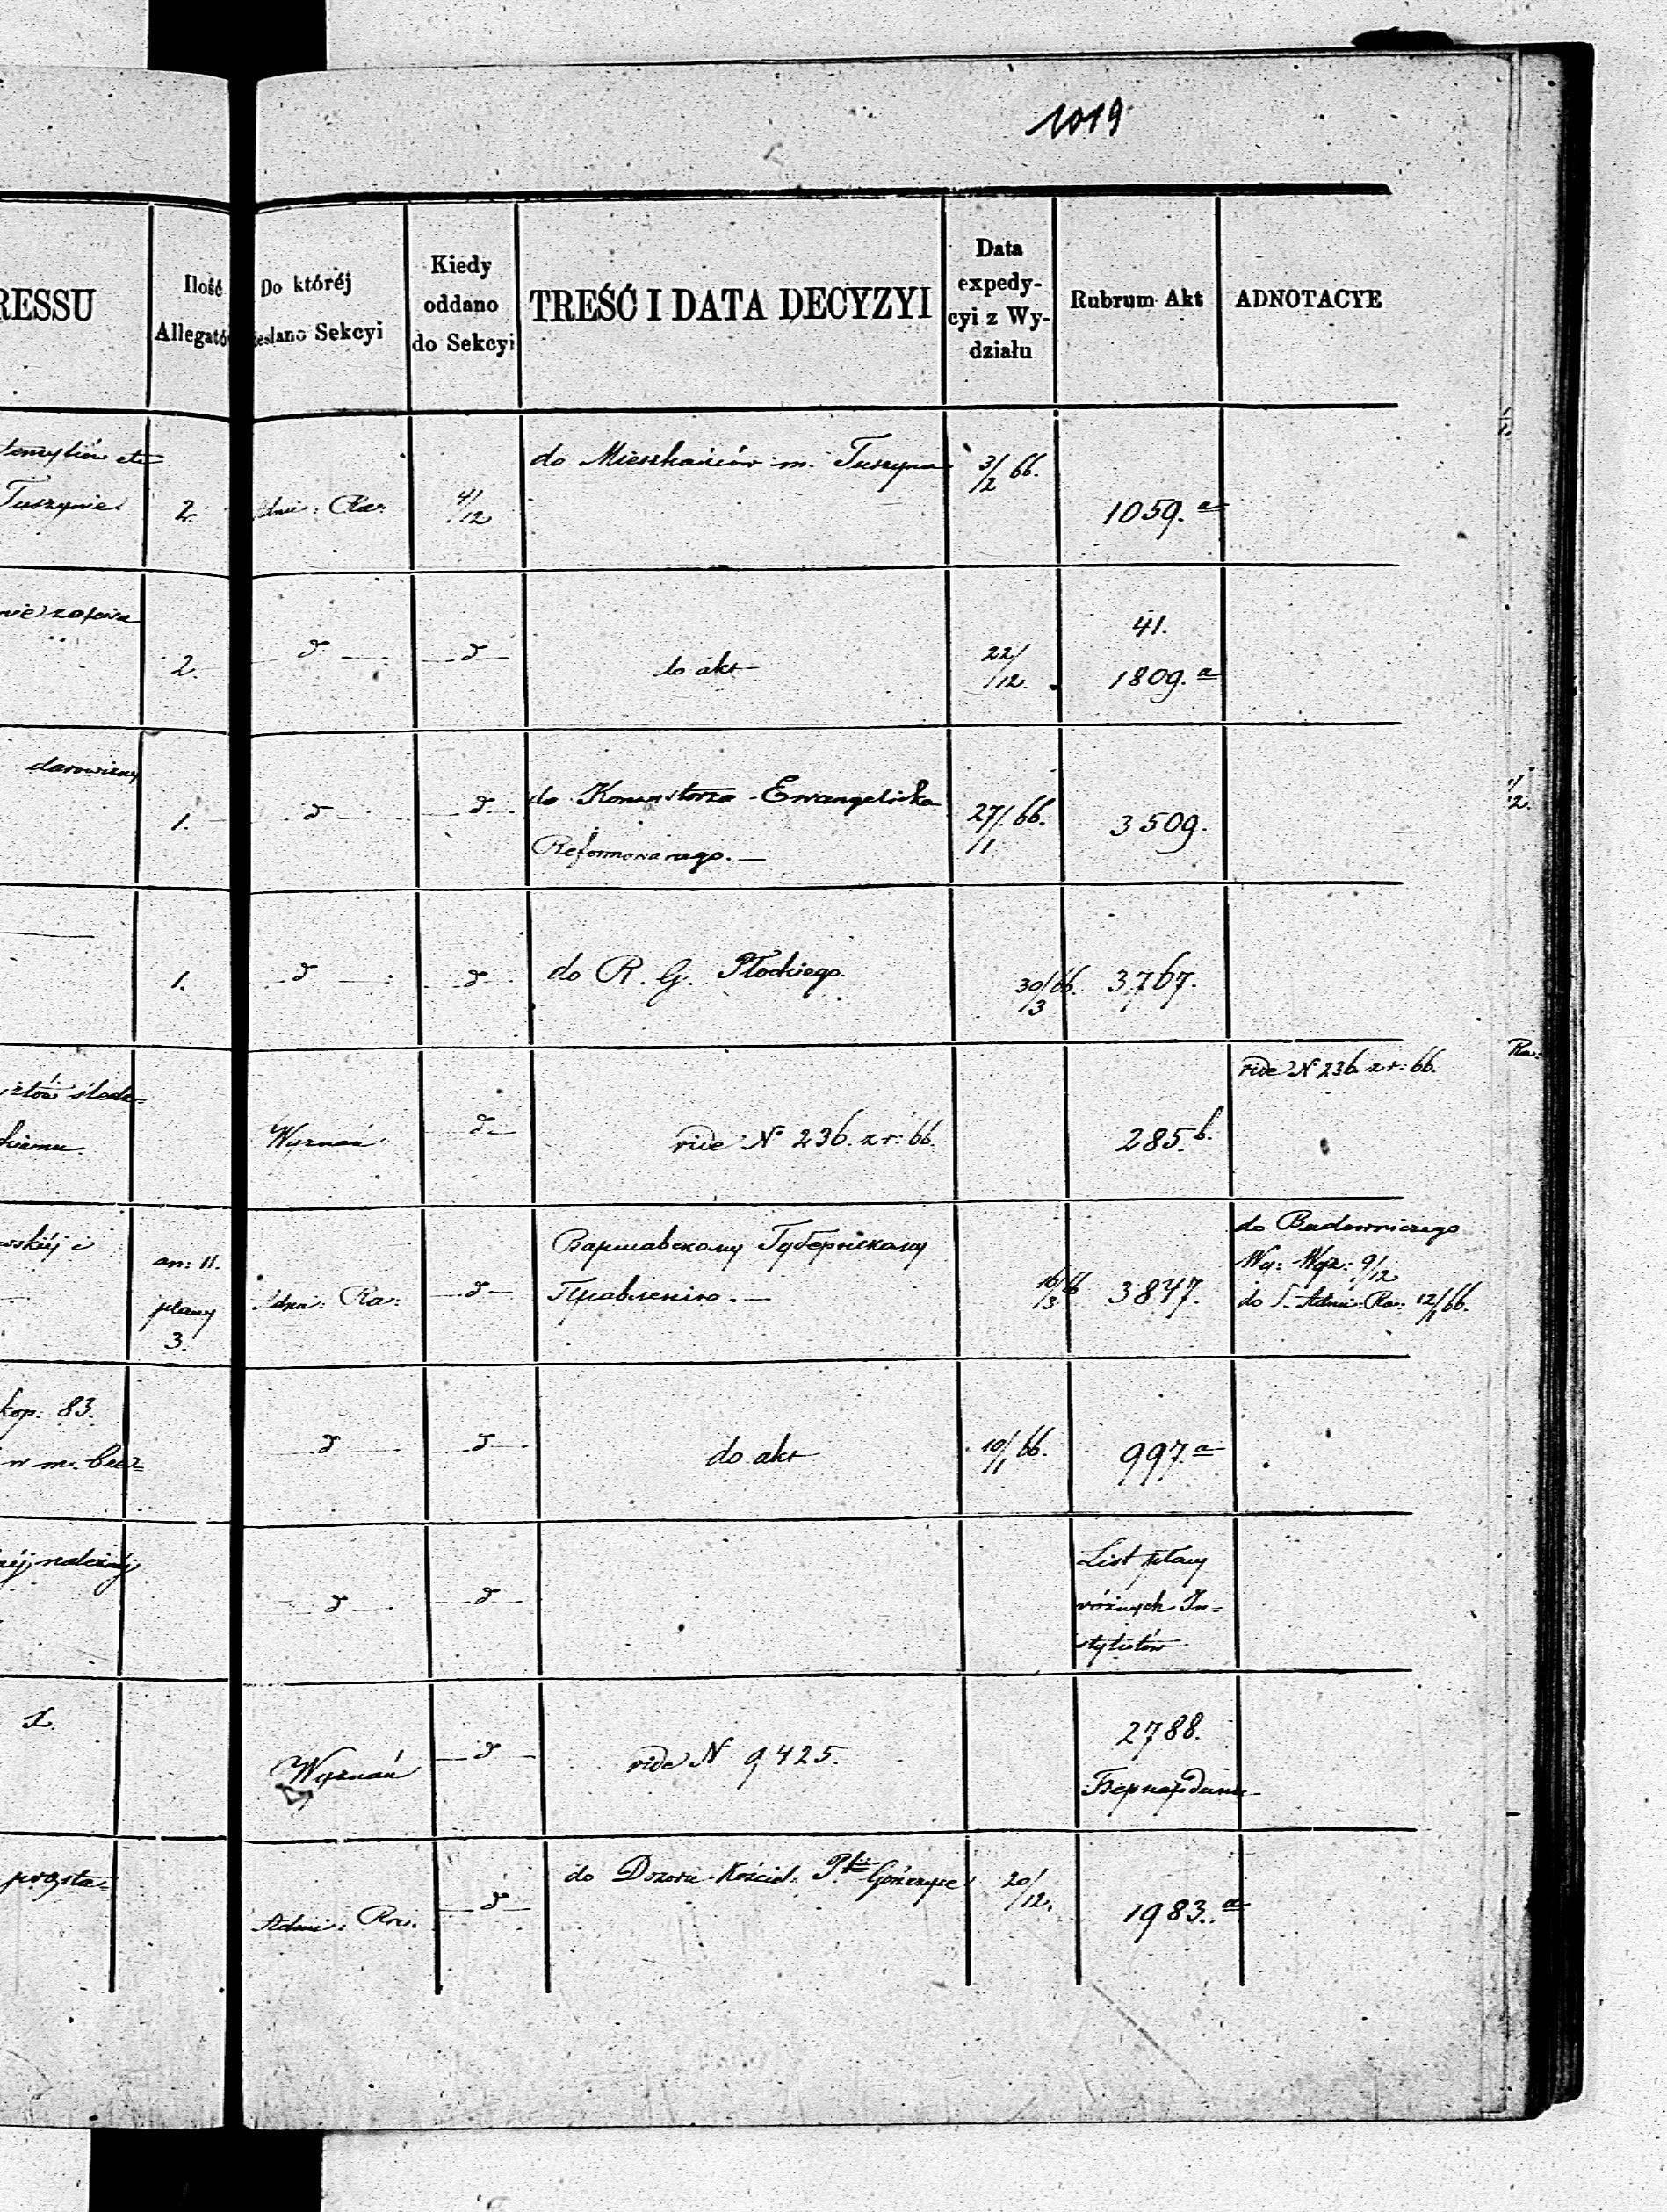 1019
RESSU
Ilość
Allegatów
Do któréj
zesłano Sekcyi
Kiedy
oddano
do Sekcyi
TREŚĆ I DATA DECYZYI
Data
expedy-
cyi z Wy-
działu
Rubrum Akt
ADNOTACYE
Tuszynie
2.
Admi: Ra:
4/12
do Mieszkańców m. Tuszyna
3/2 66.
1059. a
2.
d
d
do akt
22/12.
41.
1809. a
darowizny
1.
d
d
do Konsystorza Ewangelicko
Reformowanego. —
27/1 66.
3509.
1.
d
d
do R. G. Płockiego.
30/3 66.
3767.
Wyznań
d
vide N 236. z r: 66.
285. b.
vide N 236 z r: 66.
an: 11.
plany
3.
Admi: Ra:
d
Варшавскому Губернскому
Правленію. —
16/3 66
3847.
do Budowniczego
Wy: Wyz: 9/12
do S. Admi: Ra: 12/1 66.
kop: 83.
w m.
d
d
do akt
10/1 66.
997. a
należnéj
d
d
List płacy
różnych In=
stytutów
Wyznań
d
vide N 9425.
2788.
Бернардини
Admi: Ra:
d
do Dozoru Kościel: Gószczyce
20/12.
1983. a